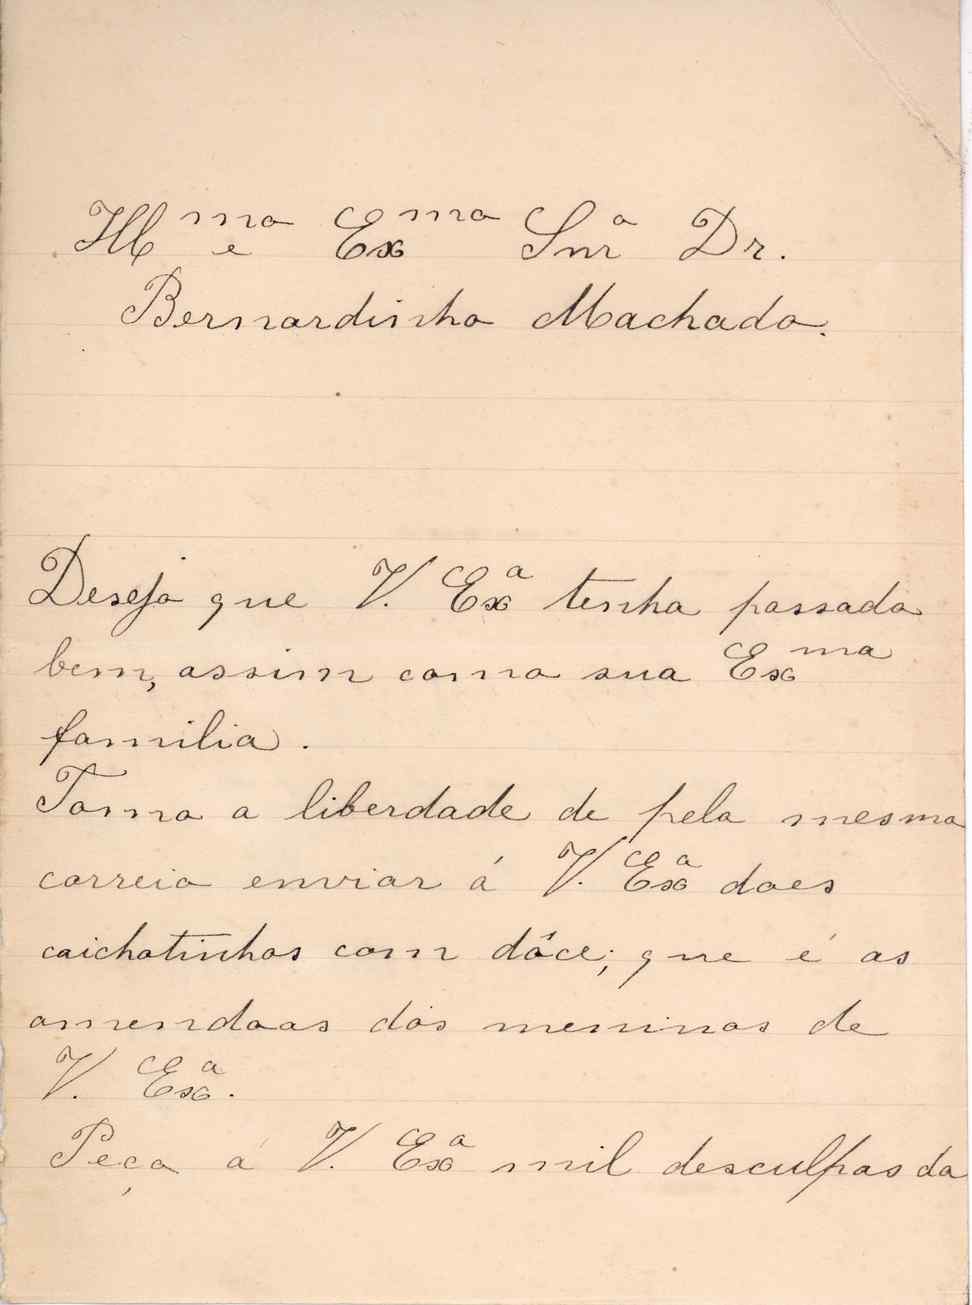 Illmo e Exmo Snro Dr.
Bernardinho Machado.
Desejo que V. Exa tenha passado
bem, assim como sua Exma
familia.
Tomo a liberdade de pelo mesmo
correio enviar á V. Exa does
caichotinhos com dôce; que é as
amendoas dós meninos de
V. Exa.
Peço á V. Exa mil desculpas da